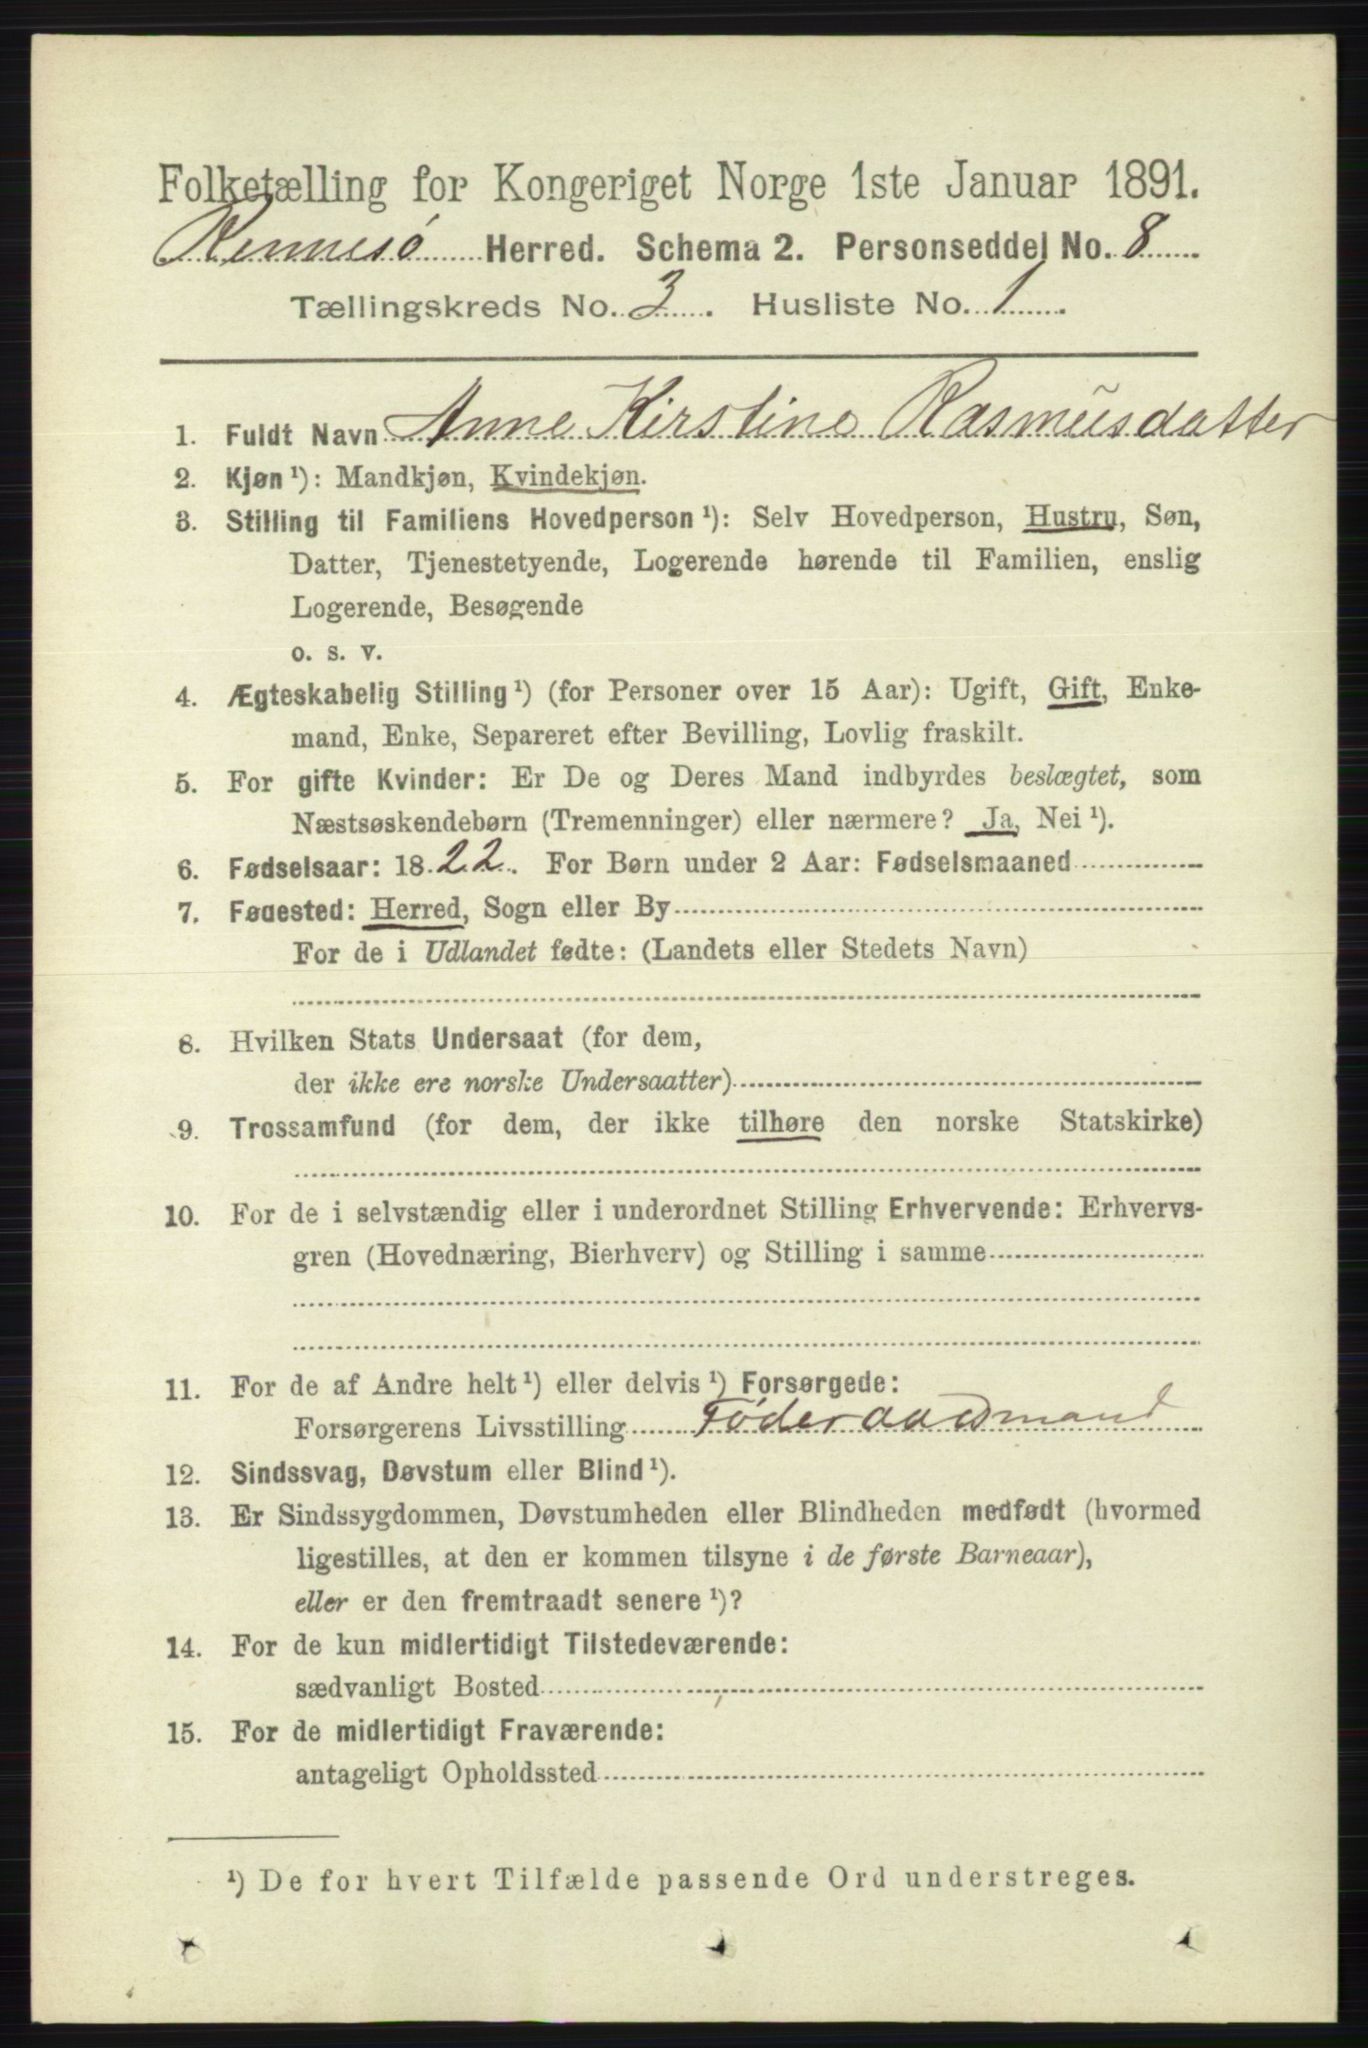 Folketælling for Kongeriget Norge 1ste Januar 1891.
Rennesø Herred. Schema 2. Personseddel No. 8
Tællingskreds No. 3. Husliste No. 1
1. Fuldt Navn Anne Kirstine Rasmusdatter
2. Kjøn ¹): Mandkjøn, Kvindekjøn.
3. Stilling til Familiens Hovedperson ¹): Selv Hovedperson, Hustru, Søn,
Datter, Tjenestetyende, Logerende hørende til Familien, enslig
Logerende, Besøgende
o. s. v.
4. Ægteskabelig Stilling ¹) (for Personer over 15 Aar): Ugift, Gift, Enke-
mand, Enke, Separeret efter Bevilling, Lovlig fraskilt.
5. For gifte Kvinder: Er De og Deres Mand indbyrdes beslægtet, som
Næstsøskendebørn (Tremenninger) eller nærmere? Ja, Nei ¹).
6. Fødselsaar: 1822. For Børn under 2 Aar: Fødselsmaaned
7. Fødested: Herred, Sogn eller By
For de i Udlandet fødte: (Landets eller Stedets Navn)
8. Hvilken Stats Undersaat (for dem,
der ikke ere norske Undersaatter)
9. Trossamfund (for dem, der ikke tilhøre den norske Statskirke)
10. For de i selvstændig eller i underordnet Stilling Erhvervende: Erhvervs-
gren (Hovednæring, Bierhverv) og Stilling i samme
11. For de af Andre helt ¹) eller delvis ¹) Forsørgede:
Forsørgerens Livsstilling Føderaadsmand
12. Sindssvag, Døvstum eller Blind ¹).
13. Er Sindssygdommen, Døvstumheden eller Blindheden medfødt (hvormed
ligestilles, at den er kommen tilsyne i de første Barneaar),
eller er den fremtraadt senere ¹)?
14. For de kun midlertidigt Tilstedeværende:
sædvanligt Bosted
15. For de midlertidigt Fraværende:
antageligt Opholdssted
¹) De for hvert Tilfælde passende Ord understreges.